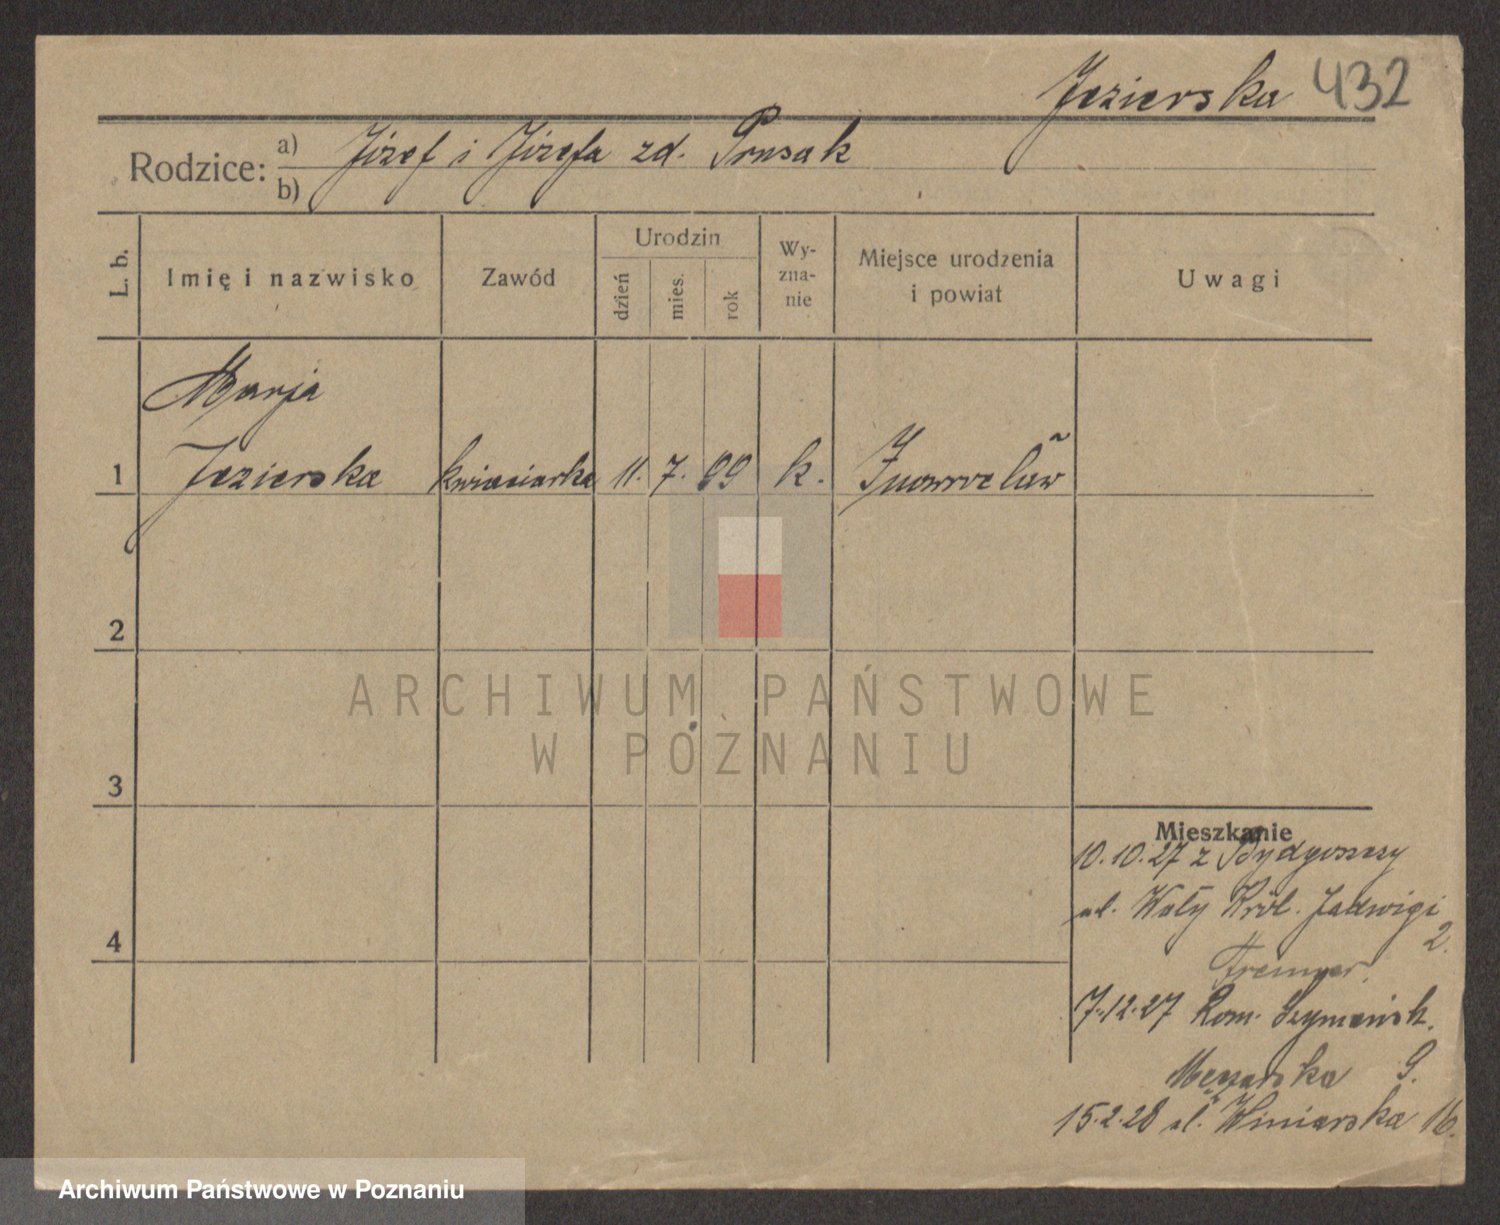 Jezierska 432
Rodzice: a) Józef i Józefa zd. Prusak
b)
L. b.
Imię i nazwisko
Zawód
Urodzin
dzień
mies.
rok
Wy-
zna-
nie
Miejsce urodzenia
i powiat
Uwagi
Marja
1 Jezierska kwiaciarka 11. 7. 99 k. Inowrocław
2
3
4
ARCHIWUM PAŃSTWOWE
W POZNANIU
Mieszkanie
10.10.27 z Bydgoszczy
ul. Wały Król. Jadwigi
2.
7.12.27 Rom. Szymańsk.
9.
15.2.28 ul. Winiarska 16.
Archiwum Państwowe w Poznaniu